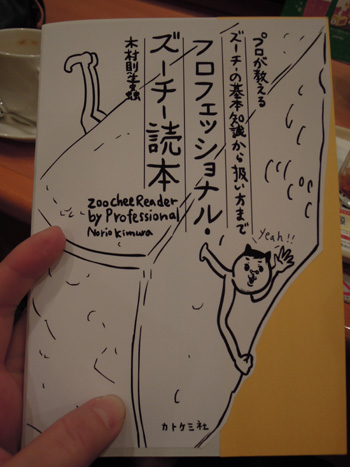 プロが教える
ズーチーの基本知識から扱い方まで
プロフェッショナル・
ズーチー読本
木村則生
ZooChee Reader
by Professional
Norio Kimura
yeah!!
カトケミ社